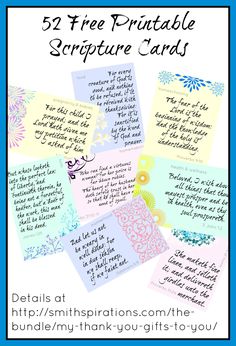 52 Free Printable
Scripture Cards
For every
creature of God is
good, and nothing
to be refused, if it
be received with
thanksgiving:
For it is
sanctified
by the word
of God and
prayer.
For this child I
prayed; and the
Lord hath given me
my petition which
I asked of him
The fear of the
Lord is the
beginning of wisdom:
and the knowledge
of the holy is
understanding.
But whoso looketh
into the perfect law
of liberty, and
continueth therein, he
being not a forgetful
hearer, but a doer of
the work, this man
shall be blessed
in his deed.
Who can find a virtuous
woman? For her price is
far above rubies.
The heart of her husband
doth safely trust in her,
so that he shall
have no need
of spoil.
Beloved, I wish above
all things that thou
mayest prosper and be
in health, even as thy
soul prospereth.
And let us not
be weary in
well doing:
for in due season
we shall reap,
if we faint not.
She maketh fine
linen, and selleth
it; and delivereth
girdles unto the
merchant.
Details at
http://smithspirations.com/the-
bundle/my-thank-you-gifts-to-you/